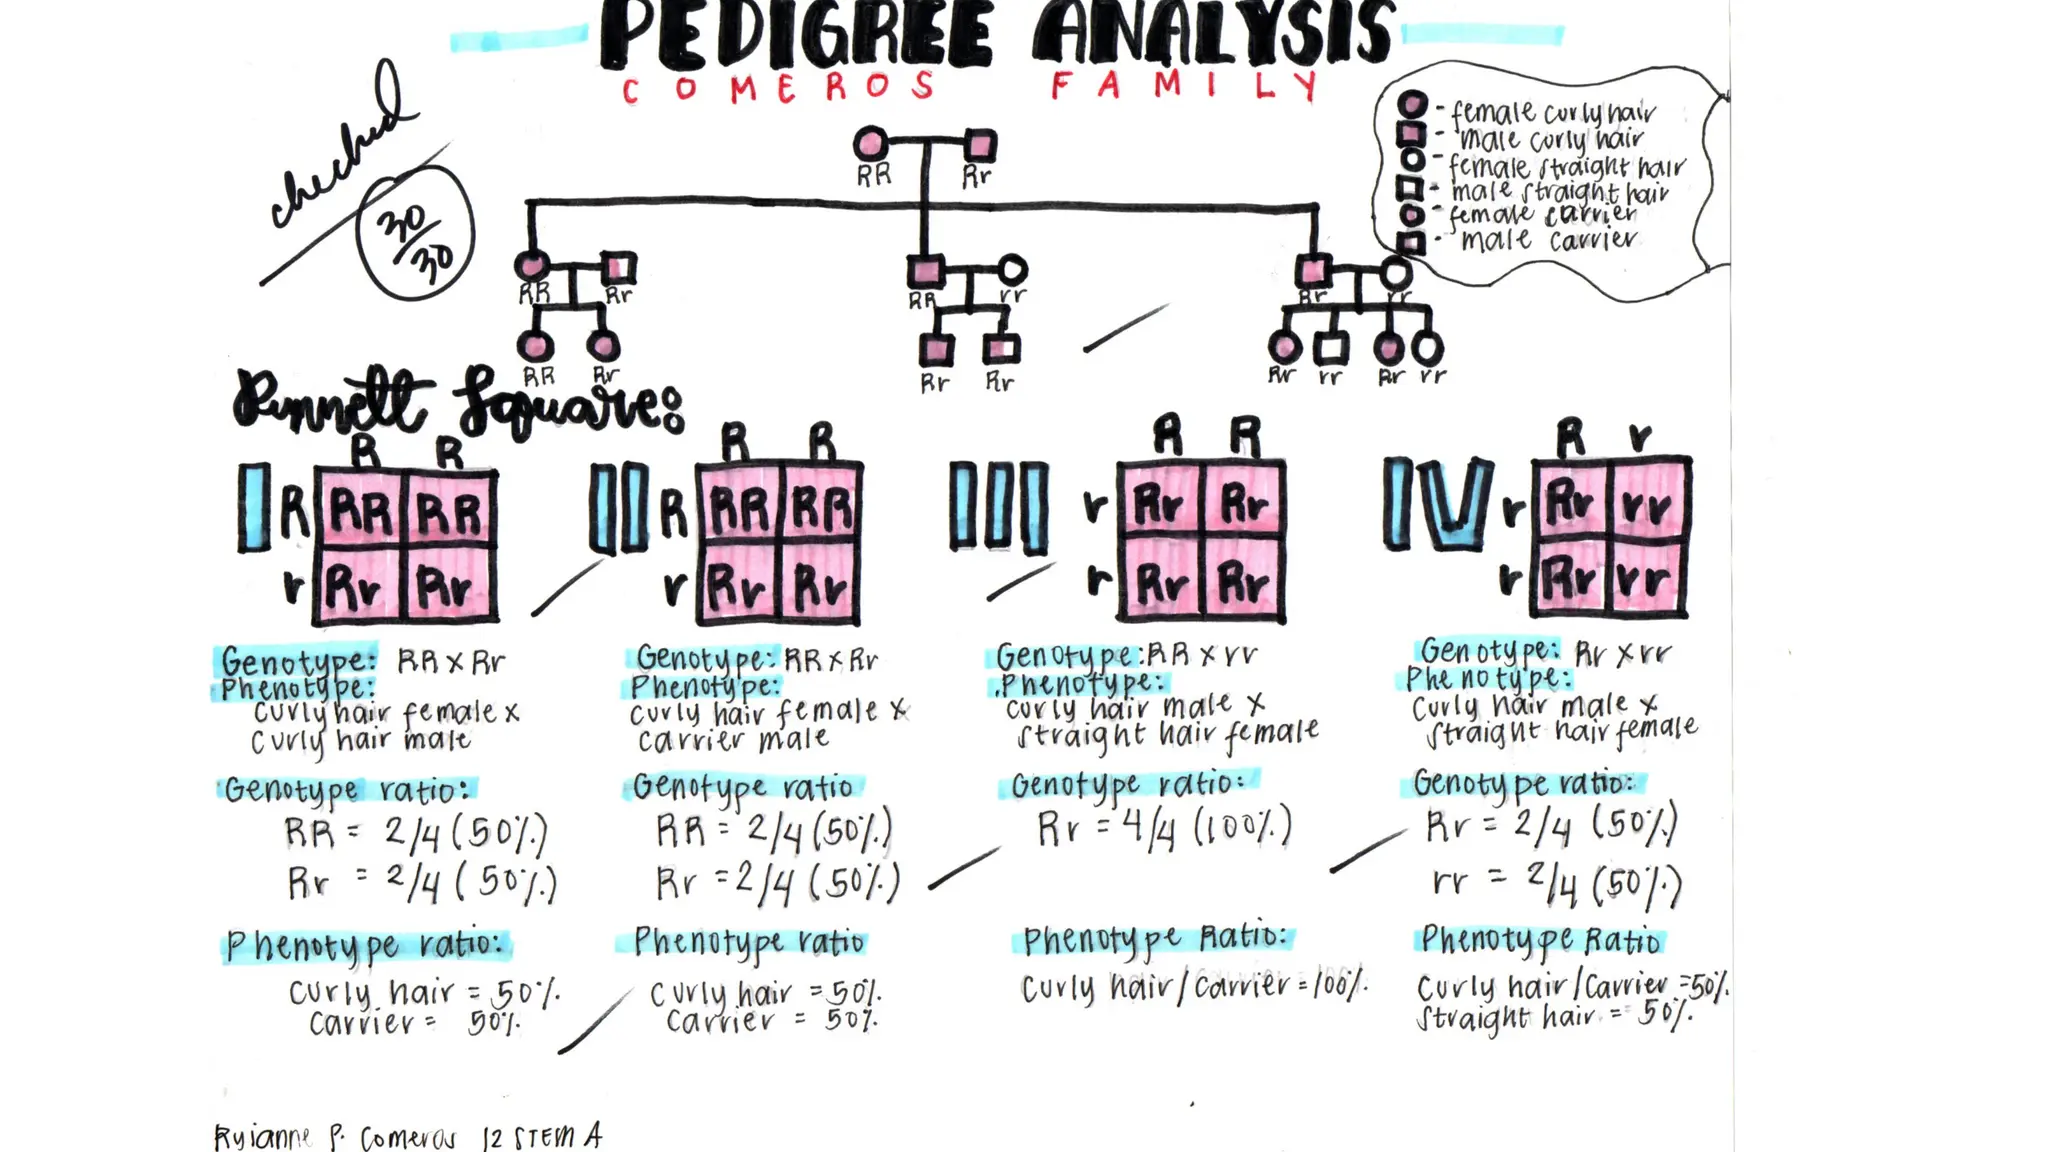 PEDIGREE ANALYSIS
COMEROS FAMILY
checked
30/30
- female curly hair
- male curly hair
- female straight hair
- male straight hair
- female carrier
- male carrier
RR Rr
RR Rr RR rr Rr rr
RR Rr Rr Rr Rr rr Rr rr
Punnett Square:
R R R R R R R r
I R RR RR II R RR RR III r Rr Rr IV r Rr rr
r Rr Rr r Rr Rr r Rr Rr r Rr rr
Genotype: RR x Rr
Phenotype:
curly hair female x
curly hair male
Genotype ratio:
RR = 2/4 (50%)
Rr = 2/4 (50%)
Phenotype ratio:
curly hair = 50%
carrier = 50%
Genotype: RR x Rr
Phenotype:
curly hair female x
carrier male
Genotype ratio
RR = 2/4 (50%)
Rr = 2/4 (50%)
Phenotype ratio
curly hair = 50%
carrier = 50%
Genotype: RR x rr
Phenotype:
curly hair male x
straight hair female
Genotype ratio:
Rr = 4/4 (100%)
Phenotype Ratio:
curly hair/carrier = 100%
Genotype: Rr x rr
Phenotype:
curly hair male x
straight hair female
Genotype ratio:
Rr = 2/4 (50%)
rr = 2/4 (50%)
Phenotype Ratio
curly hair/carrier = 50%
straight hair = 50%
Ryianne P. Comeros 12 STEM A